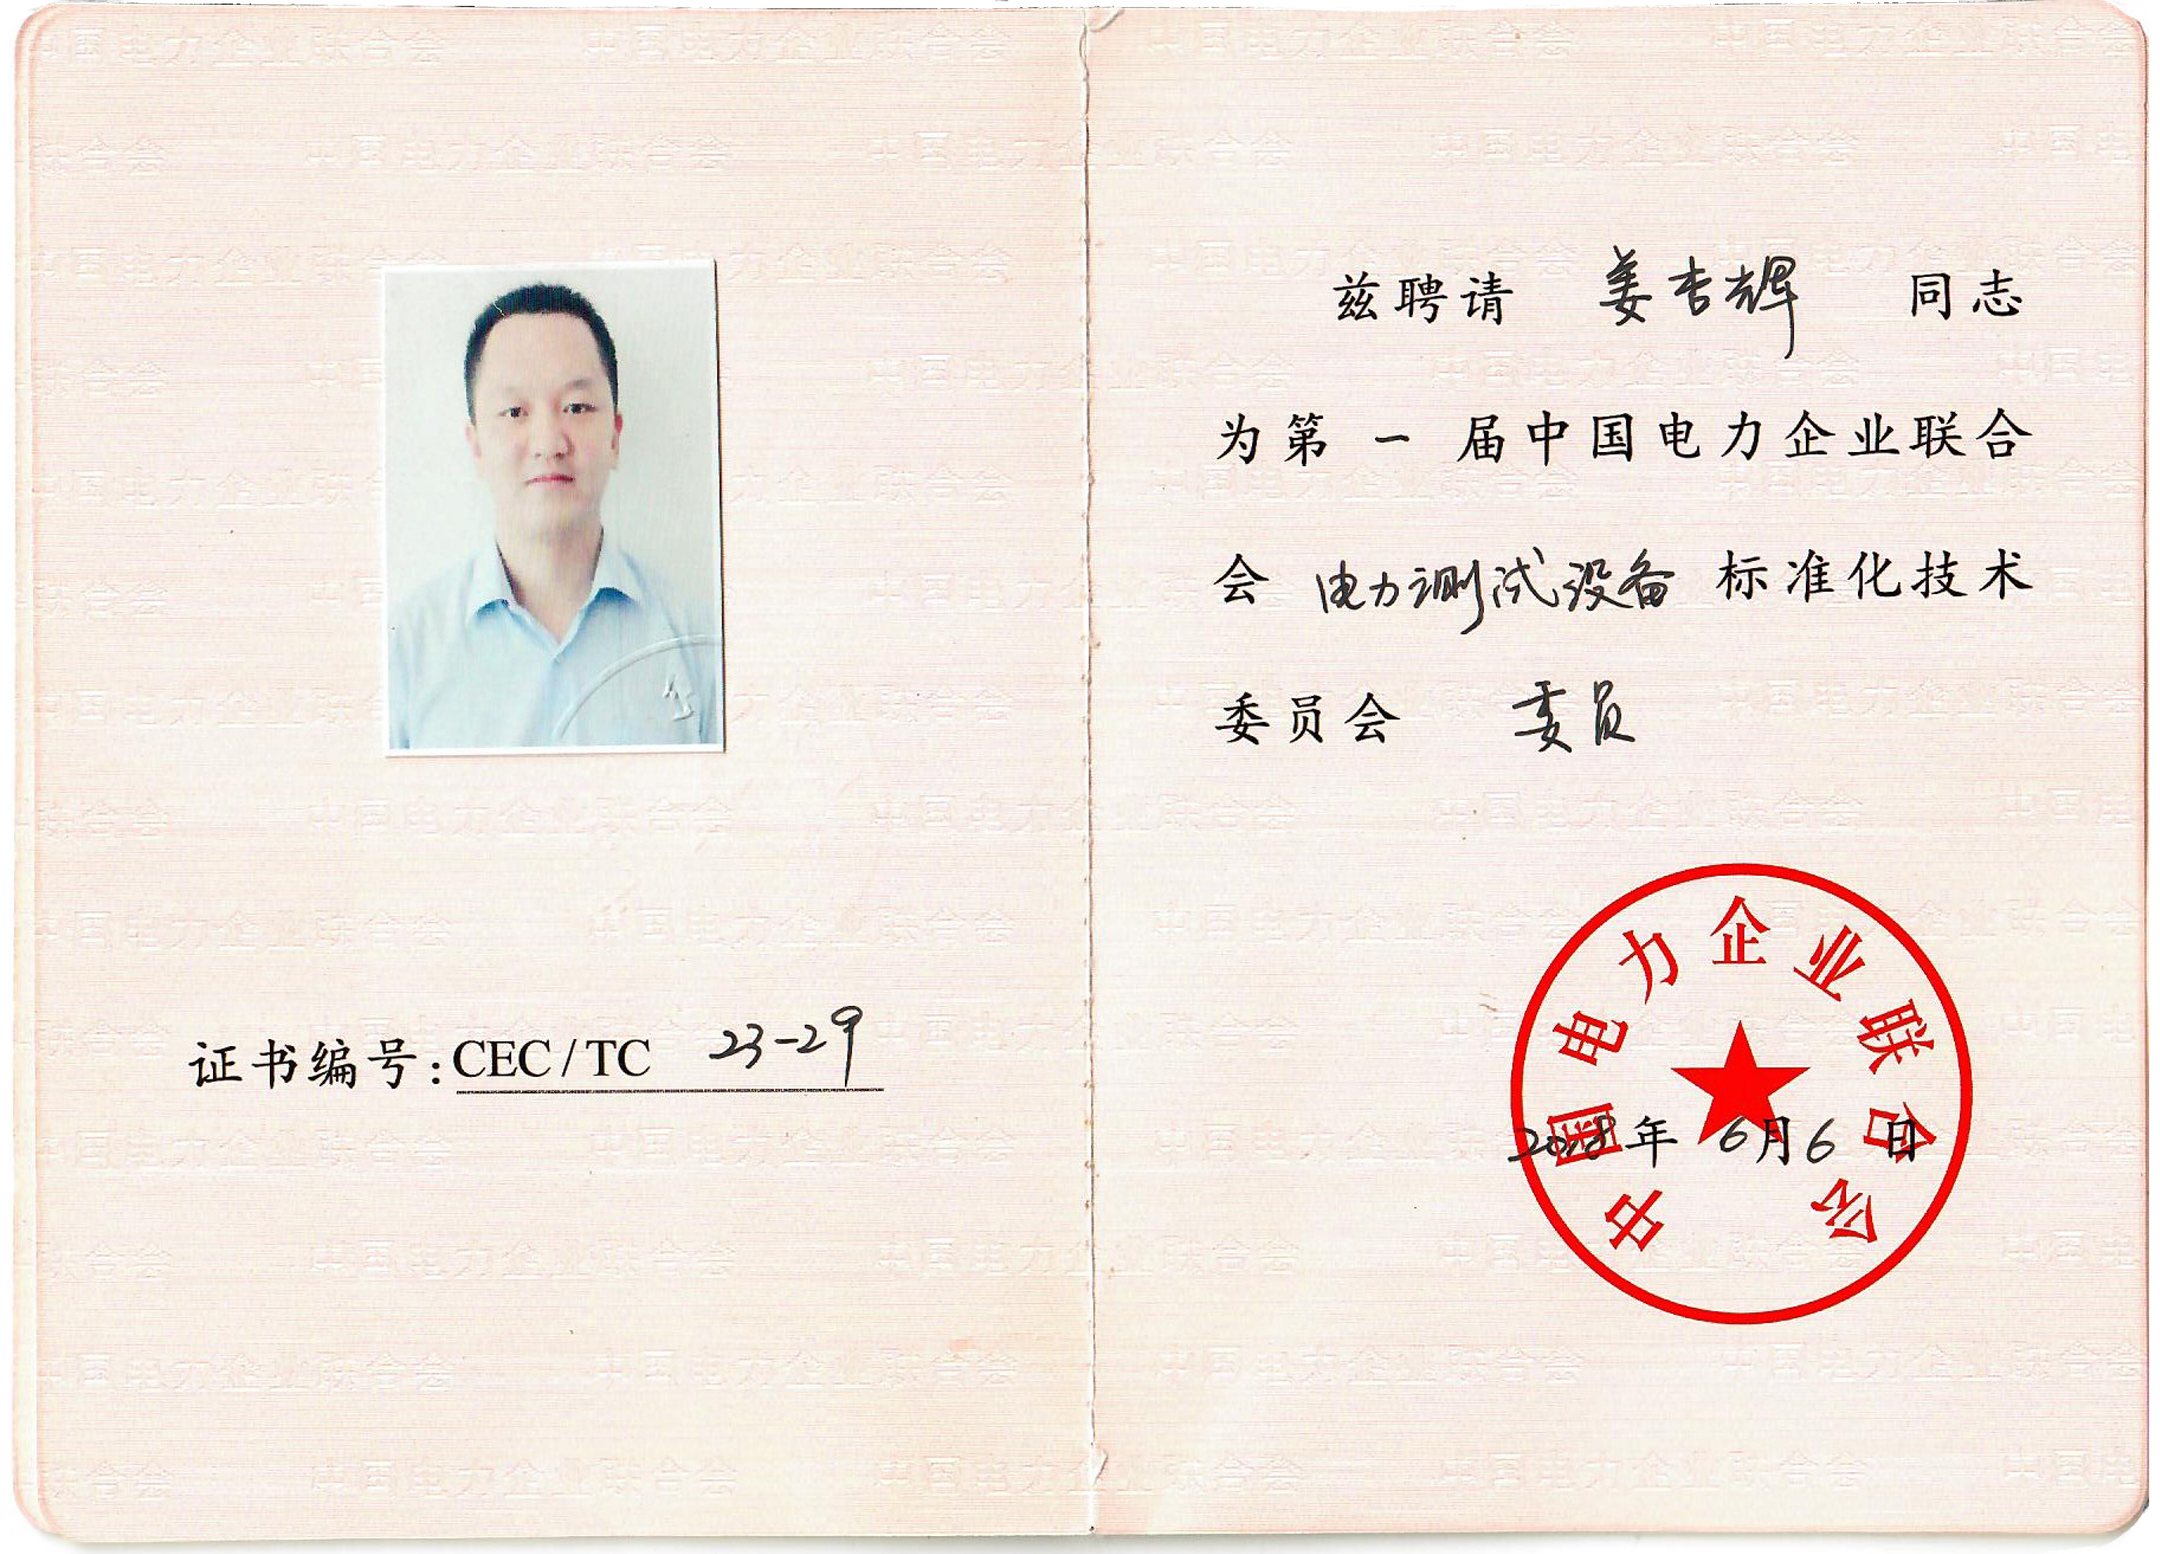 证书编号:CEC/TC 23-29
兹聘请 姜杏辉 同志
为第 一 届中国电力企业联合
会 电力测试设备 标准化技术
委员会 委员
中国电力企业联合会
2018年 6月6日